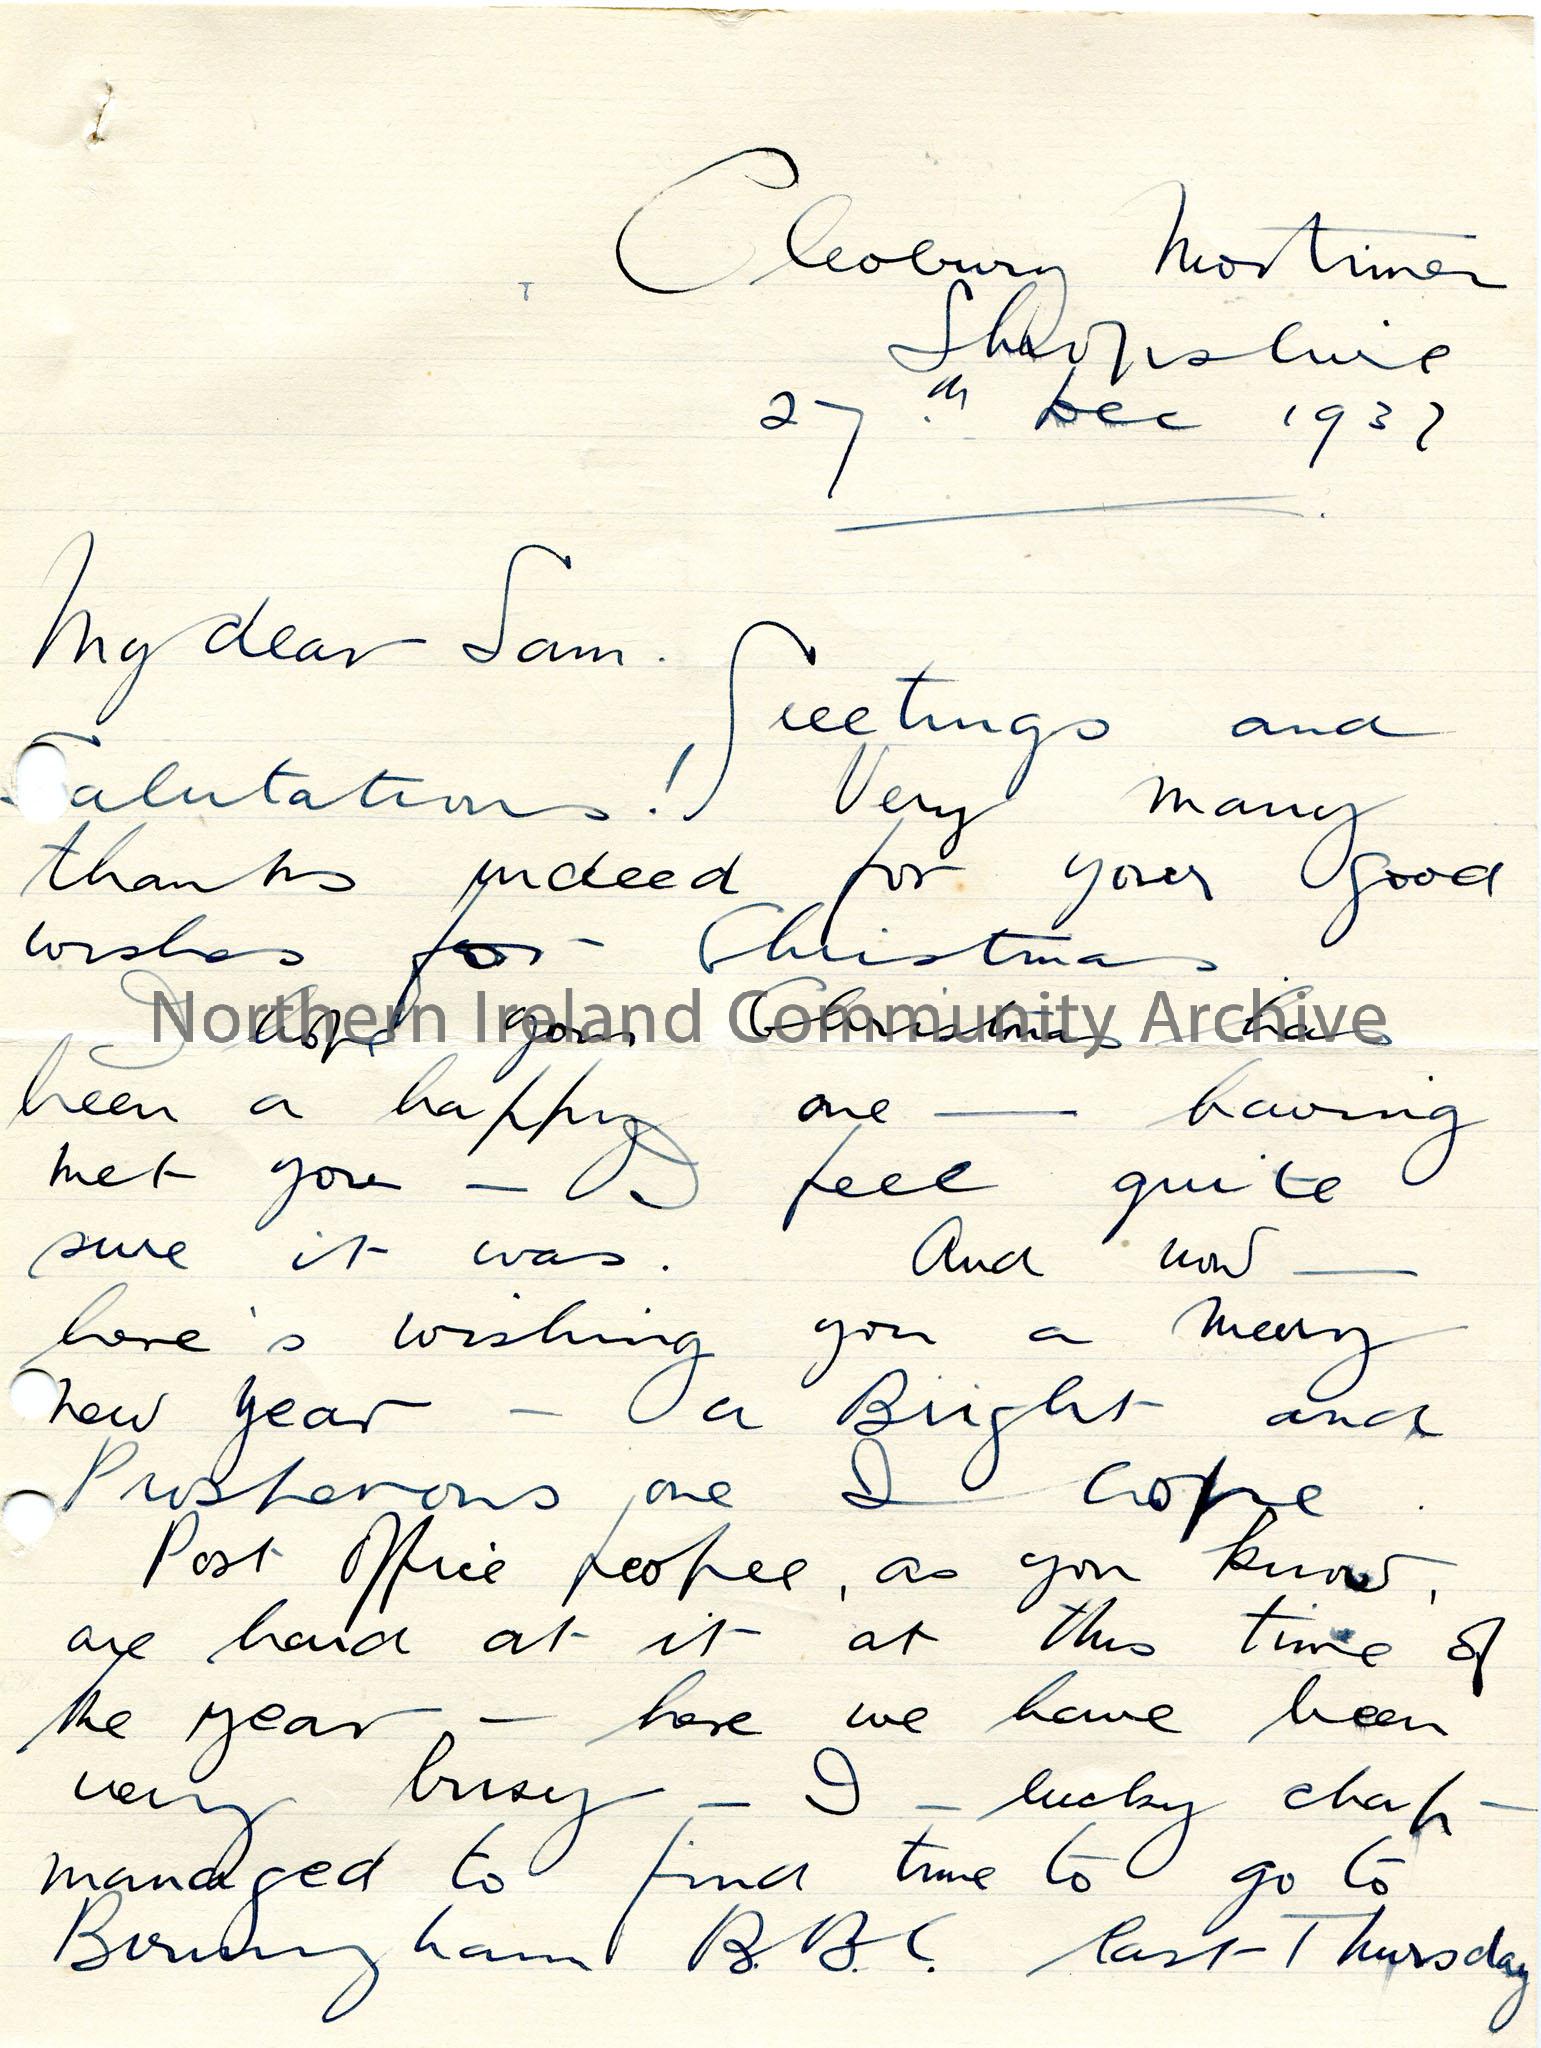 Cleobury Mortimer
Shropshire
27th Dec 1937
My dear Sam.
Greetings and
Salutations! Very many
thanks indeed for your good
wishes for Christmas.
I hope your Christmas has
Northern Ireland Community Archive
been a happy one — having
met you — I feel quite
sure it was. And now —
here's wishing you a merry
new year — a Bright and
Prosperous one I hope.
Post Office people, as you know,
are hard at it at this time of
the year — here we have been
very busy — I — lucky chap —
managed to find time to go to
Birmingham B.B.C. last Thursday